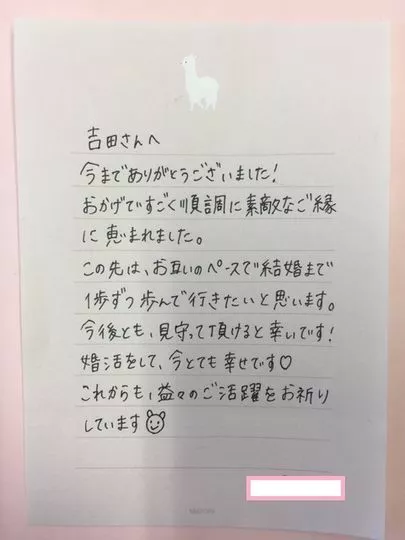 吉田さんへ
今までありがとうございました!
おかげですごく順調に素敵なご縁
に恵まれました。
この先は、お互いのペースで結婚まで
1歩ずつ歩んで行きたいと思います。
今後とも、見守って頂けると幸いです!
婚活をして、今とても幸せです♡
これからも、益々のご活躍をお祈り
しています